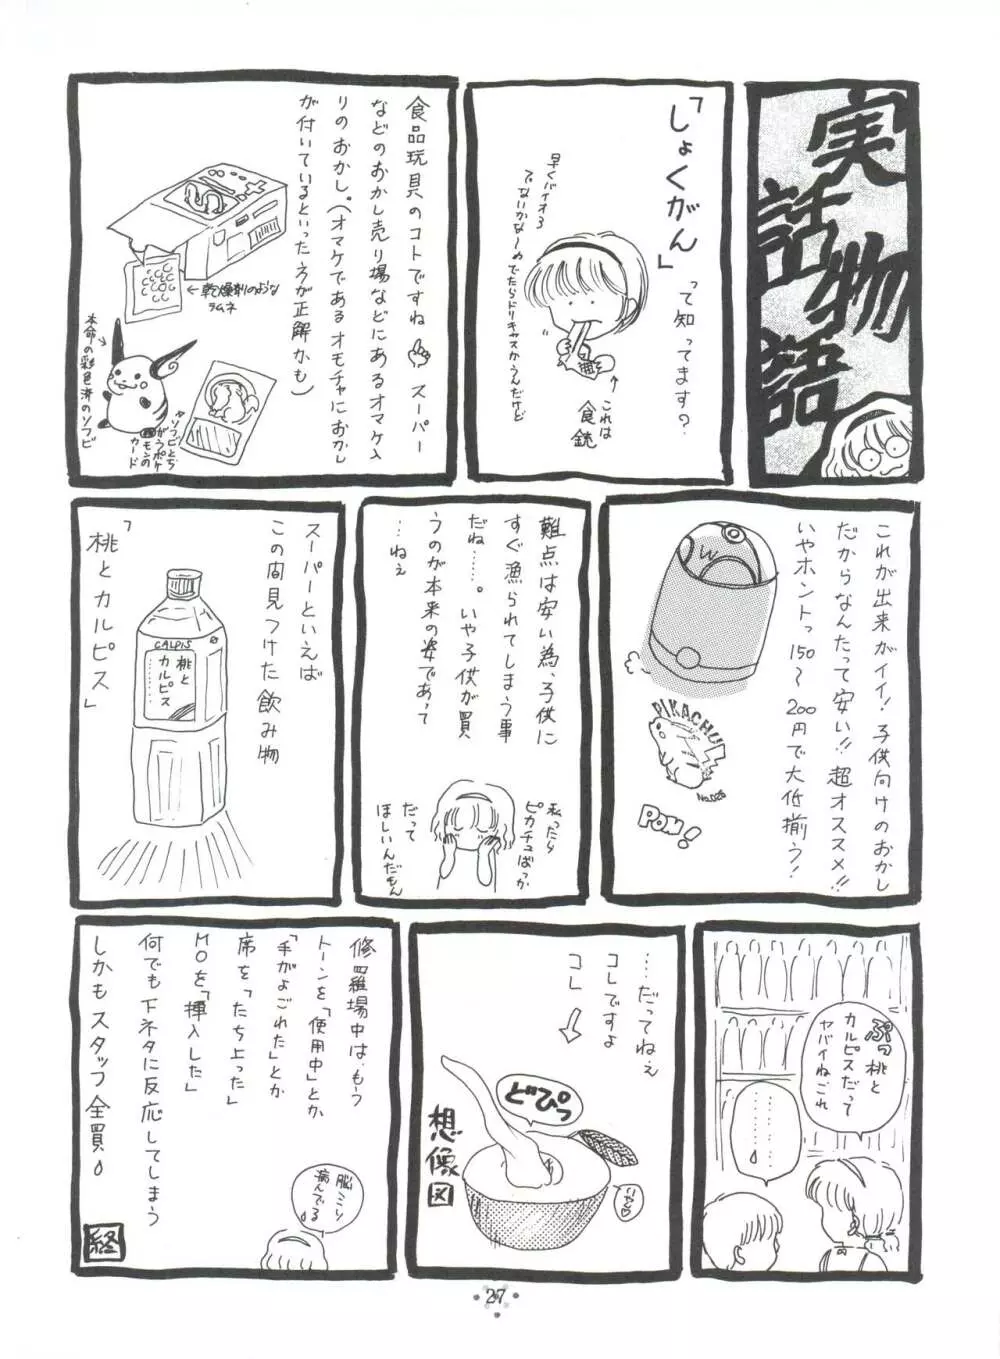 実話物語
「しょくがん」
って知ってます？
早くバイオ3
でないかなーめでたらドリキャスかうんだけど
これは
食銃
食品玩具のコトですね スーパー
などのおかし売り場などにあるオマケ入
りのおかし。（オマケであるオモチャにおかし
が付いているといった方が正解かも）
←乾燥剤のような
ラムネ
本命の彩色済のソフビ
ソフビとち
がうポケ
モンの
カード
これが出来がイイ！子供向けのおかし
だからなんたって安い!!超オススメ!!
いやホントっ150〜200円で大低揃う！
PIKACHU
No.025
POW!
難点は安い為、子供に
すぐ漁られてしまう事
だね……。いや子供が買
うのが本来の姿であって
…ねぇ
私ったら
ピカチュばっか
だって
ほしいんだもん
スーパーといえば
この間見つけた飲み物
「桃とカルピス」
CALPIS
桃と
カルピス
ぷっ桃と
カルピスだって
ヤバイねこれ
…………
……
……だってねぇ
コレですよ
コレ→
どぴっ
想像図
修羅場中は、もう
トーンを「使用中」とか
「手がよごれた」とか
席を「たち上った」
MOを「挿入した」
何でも下ネタに反応してしまう
しかもスタッフ全員
脳ミソ
病んでる
終
27